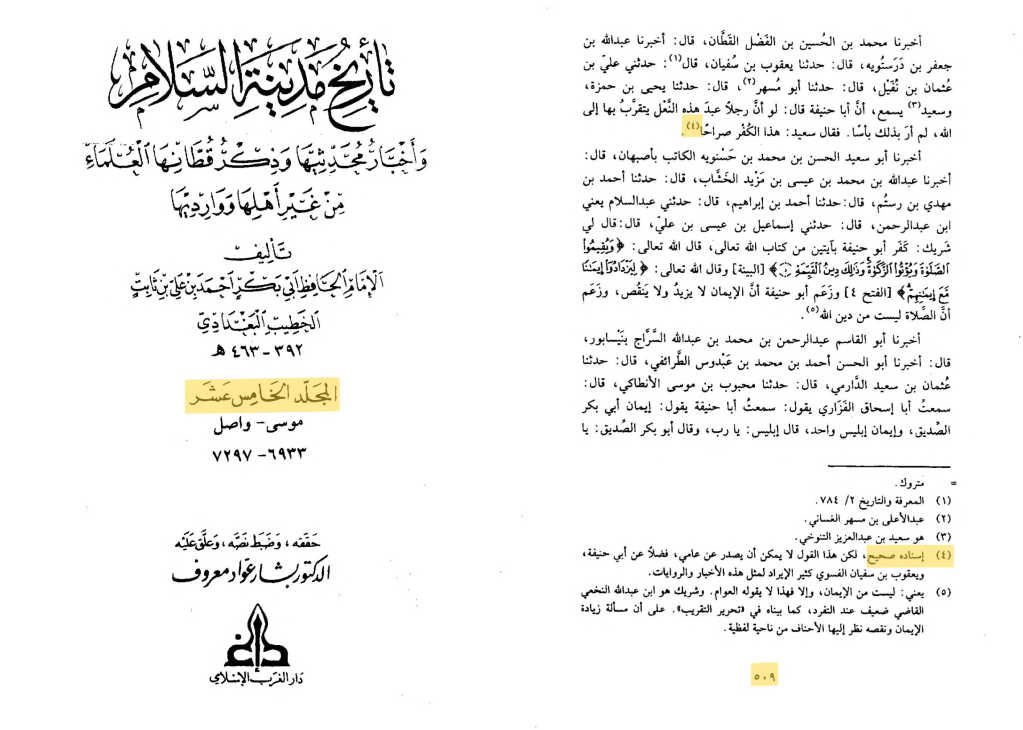 تاريخ مدينة السلام
وأخبار محدثيها وذكر قطانها العلماء
من غير أهلها ووارديها
تأليف
الإمام الحافظ أبي بكر أحمد بن علي بن ثابت
الخطيب البغدادي
٣٩٢ - ٤٦٣ هـ
المجلد الخامس عشر
موسى - واصل
٦٩٣٣ - ٧٢٩٧
حققه، وضبط نصه، وعلق عليه
الدكتور بشار عواد معروف
دار الغرب الإسلامي
أخبرنا محمد بن الحُسين بن الفَضْل القَطَّان، قال: أخبرنا عبدالله بن
جعفر بن دَرَستُويه، قال: حدثنا يعقوب بن سُفيان، قال(١): حدثني عليّ بن
عُثمان بن نُفَيْل، قال: حدثنا أبو مُسهر(٢)، قال: حدثنا يحيى بن حمزة،
وسعيد(٣) يسمع، أنَّ أبا حنيفة قال: لو أنَّ رجلاً عبدَ هذه النَّعْل يتقرَّبُ بها إلى
الله، لم أرَ بذلك بأسًا. فقال سعيد: هذا الكُفْر صراحًا(٤).
أخبرنا أبو سعيد الحسن بن محمد بن حَسْنويه الكاتب بأصبهان، قال:
أخبرنا عبدالله بن محمد بن عيسى بن مَزْيد الخَشَّاب، قال: حدثنا أحمد بن
مهدي بن رستُم، قال: حدثنا أحمد بن إبراهيم، قال: حدثني عبدالسلام يعني
ابن عبدالرحمن، قال: حدثني إسماعيل بن عيسى بن عليّ، قال: قال لي
شَريك: كَفَر أبو حنيفة بآيتين من كتاب الله تعالى، قال الله تعالى: ﴿وَيُقِيمُوا۟
ٱلصَّلَوٰةَ وَيُؤْتُوا۟ ٱلزَّكَوٰةَ وَذَٰلِكَ دِينُ ٱلْقَيِّمَةِ ۝٥﴾ [البينة] وقال الله تعالى: ﴿لِيَزْدَادُوٓا۟ إِيمَٰنًا
مَّعَ إِيمَٰنِهِمْ﴾ [الفتح ٤] وزَعَم أبو حنيفة أنَّ الإيمان لا يزيدُ ولا يَنقُص، وزَعَم
أنَّ الصَّلاة ليست من دين الله(٥).
أخبرنا أبو القاسم عبدالرحمن بن محمد بن عبدالله السَّرَّاج بنَيْسابور،
قال: أخبرنا أبو الحسن أحمد بن محمد بن عَبْدوس الطَّرائفي، قال: حدثنا
عُثمان بن سعيد الدَّارمي، قال: حدثنا محبوب بن موسى الأنطاكي، قال:
سمعتُ أبا إسحاق الفَزَاري يقول: سمعتُ أبا حنيفة يقول: إيمان أبي بكر
الصِّديق، وإيمان إبليس واحد، قال إبليس: يا رب، وقال أبو بكر الصِّديق: يا
= متروك.
(١) المعرفة والتاريخ ٢/ ٧٨٤.
(٢) عبدالأعلى بن مسهر الغساني.
(٣) هو سعيد بن عبدالعزيز التنوخي.
(٤) إسناده صحيح، لكن هذا القول لا يمكن أن يصدر عن عامي، فضلاً عن أبي حنيفة،
ويعقوب بن سفيان الفسوي كثير الإيراد لمثل هذه الأخبار والروايات.
(٥) يعني: ليست من الإيمان، وإلا فهذا لا يقوله العوام. وشريك هو ابن عبدالله النخعي
القاضي ضعيف عند التفرد، كما بيناه في «تحرير التقريب». على أن مسألة زيادة
الإيمان ونقصه نظر إليها الأحناف من ناحية لفظية.
٥٠٩